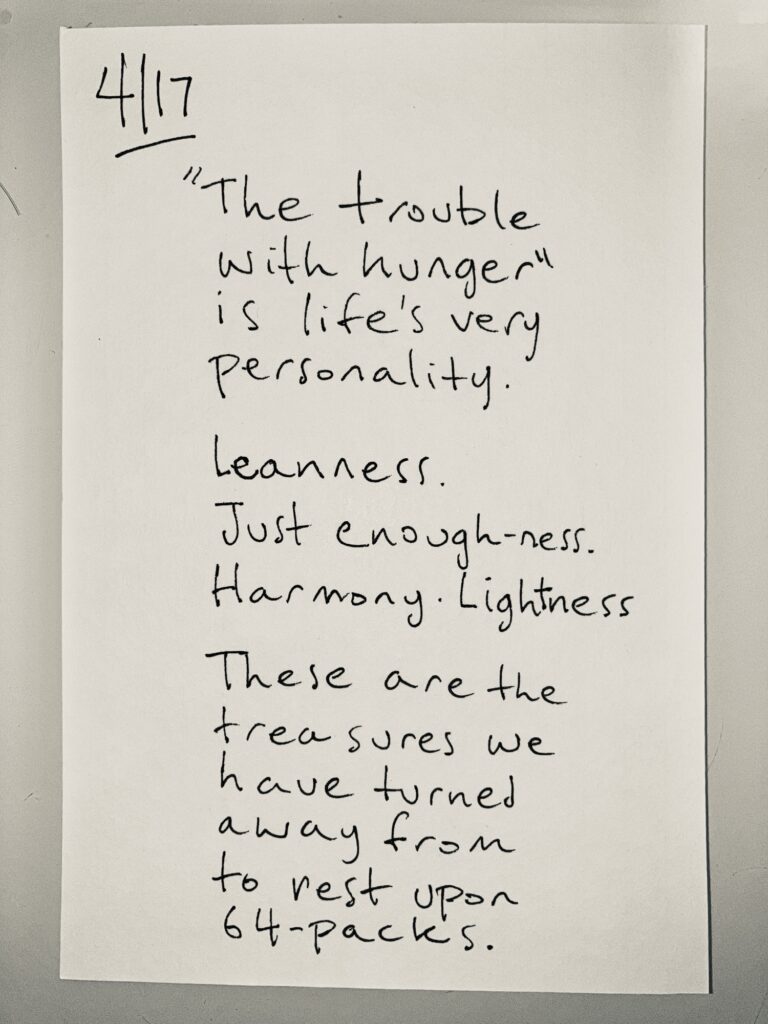 4/17
"The trouble
with hunger"
is life's very
personality.
Leanness.
Just enough-ness.
Harmony. Lightness
These are the
treasures we
have turned
away from
to rest upon
64-packs.